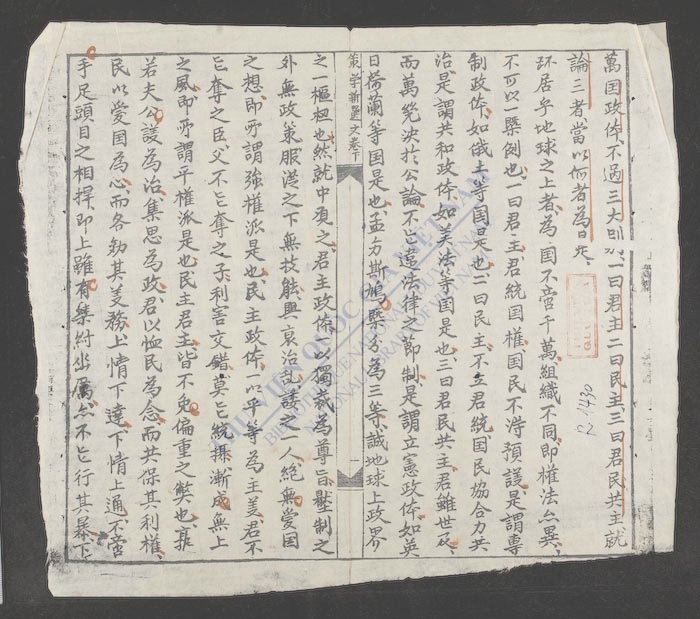 萬囯政体不過三大别一曰君主二曰民主三曰君民共主就
論三者當以何者為
环居乎地球之上者為國不啻千萬組織不同即權法亦異
不可以一槩例也一曰君主君統国權国民不淂預議是謂專
制政体如俄土等国是也二曰民主不立君統国民協合力共
治是謂共和政体如美法等国是也三曰君民共主君雖世及
而萬幾决於公論不亡違法律之節制是謂立憲政体如英
日荷蘭等国是也孟方斯鳩槩分為三等誠地球上政界
策学新選文卷下
一
之一樞杻也然就中覈之君主政体以獨裁為尊旨壓制之
外無政策服從之下無技能興衰治乱諉之一人絶無愛国
之想即所謂強權派是也民主政体以平等為主義君不
亡奪之臣父不亡奪之子利害交錯莫亡統攝漸成無上
之風即所謂平權派是也民主君主皆不免偏重之獘也
若夫公議為治集思為政君以恤民為念而共保其利權
民以愛国為心而各効其義務上情下達下情上通不啻
手足頭目之相捍即上雖有桀紂幽厲亦不亡行其暴下
R 1430
THƯ VIỆN QUỐC GIA VIỆT NAM
NATIONAL LIBRARY OF VIETNAM